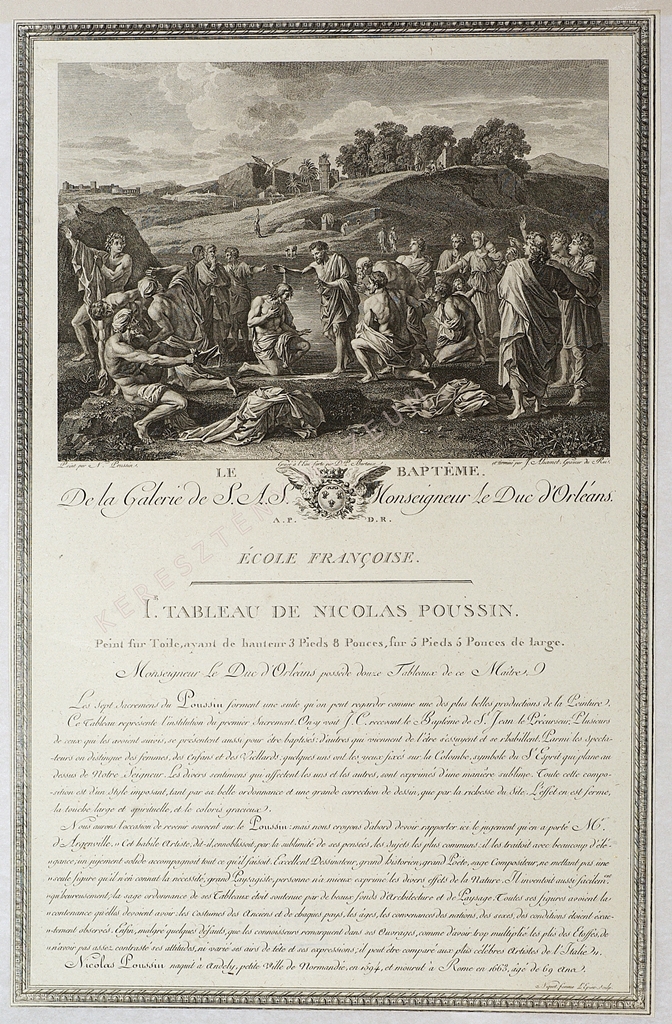 Peint par N. Poussin.
et terminé par J. Aliamet Graveur du Roi.
LE BAPTÊME.
De la Galerie de S. A. S. Monseigneur Le Duc d'Orléans.
A. P. D. R.
ÉCOLE FRANÇOISE.
Ir. TABLEAU DE NICOLAS POUSSIN.
Peint sur Toile, ayant de hauteur 3 Pieds 8 Pouces, sur 5 Pieds 5 Pouces de large.
Monseigneur Le Duc d'Orléans possede douze Tableaux de ce Maitre.
Les Sept Sacremens du Poussin forment une suite qu'on peut regarder comme une des plus belles productions de la Peinture.
Ce Tableau représente l'institution du premier Sacrement. On y voit J. C. recevant le Baptême de St. Jean le Précurseur. Plusieurs
de ceux qui les avoient suivis, se présentent aussi pour être baptisés: d'autres qui viennent de l'être s'essuyent et se rhabillent. Parmi les specta-
teurs on distingue des femmes, des Enfans et des Vieillards: quelques uns ont les yeux fixés sur la Colombe, symbole du St. Esprit qui plane au
dessus de Notre Seigneur. Les divers sentimens qui affectent les uns et les autres, sont exprimés d'une manière sublime. Toute cette compo-
sition est d'un Style imposant, tant par sa belle ordonnance et une grande correction de dessin, que par la richesse du Site. L'effet en est ferme,
la touche large et spirituelle, et le coloris gracieux.
Nous aurons l'occasion de revenir souvent sur le Poussin: mais nous croyons d'abord devoir rapporter ici le jugement qu'en a porté Mr.
d'Argenville. "Cet habile Artiste, dit-il, ennoblissoit par la sublimité de ses pensées, les Sujets les plus communs: il les traitoit avec beaucoup d'élé-
"gance, un jugement solide accompagnoit tout ce qu'il faisoit. Excellent Dessinateur, grand historien, grand Poete, sage Compositeur, ne mettant pas une
"seule figure qu'il n'en connût la necessité, grand Paysagiste, personne n'a mieux exprimé les divers effets de la Nature. Il inventoit aussi facilem.ent
"qu'heureusement, la sage ordonnance de ses Tableaux étoit soutenue par de beaux fonds d'Architecture et de Paysage. Toutes ses figures avoient la
"contenance qu'elles devoient avoir: les Costumes des Anciens et de chaques pays, les âges, les convenances des nations, des sexes, des conditions étoient exac-
"tement observés. Enfin, malgré quelques défauts, que les connoisseurs remarquent dans ses Ouvrages, comme d'avoir trop multiplié les plis des Etoffes, de
"n'avoir pas assez contrasté ses attitudes, ni varié ses airs de tête et ses expressions; il peut être comparé aux plus célèbres Artistes de l'Italie.
Nicolas Poussin naquit à Andely, petite Ville de Normandie, en 1594, et mourut à Rome en 1663, âgé de 69 ans.
KERESZTÉNY MÚZEUM